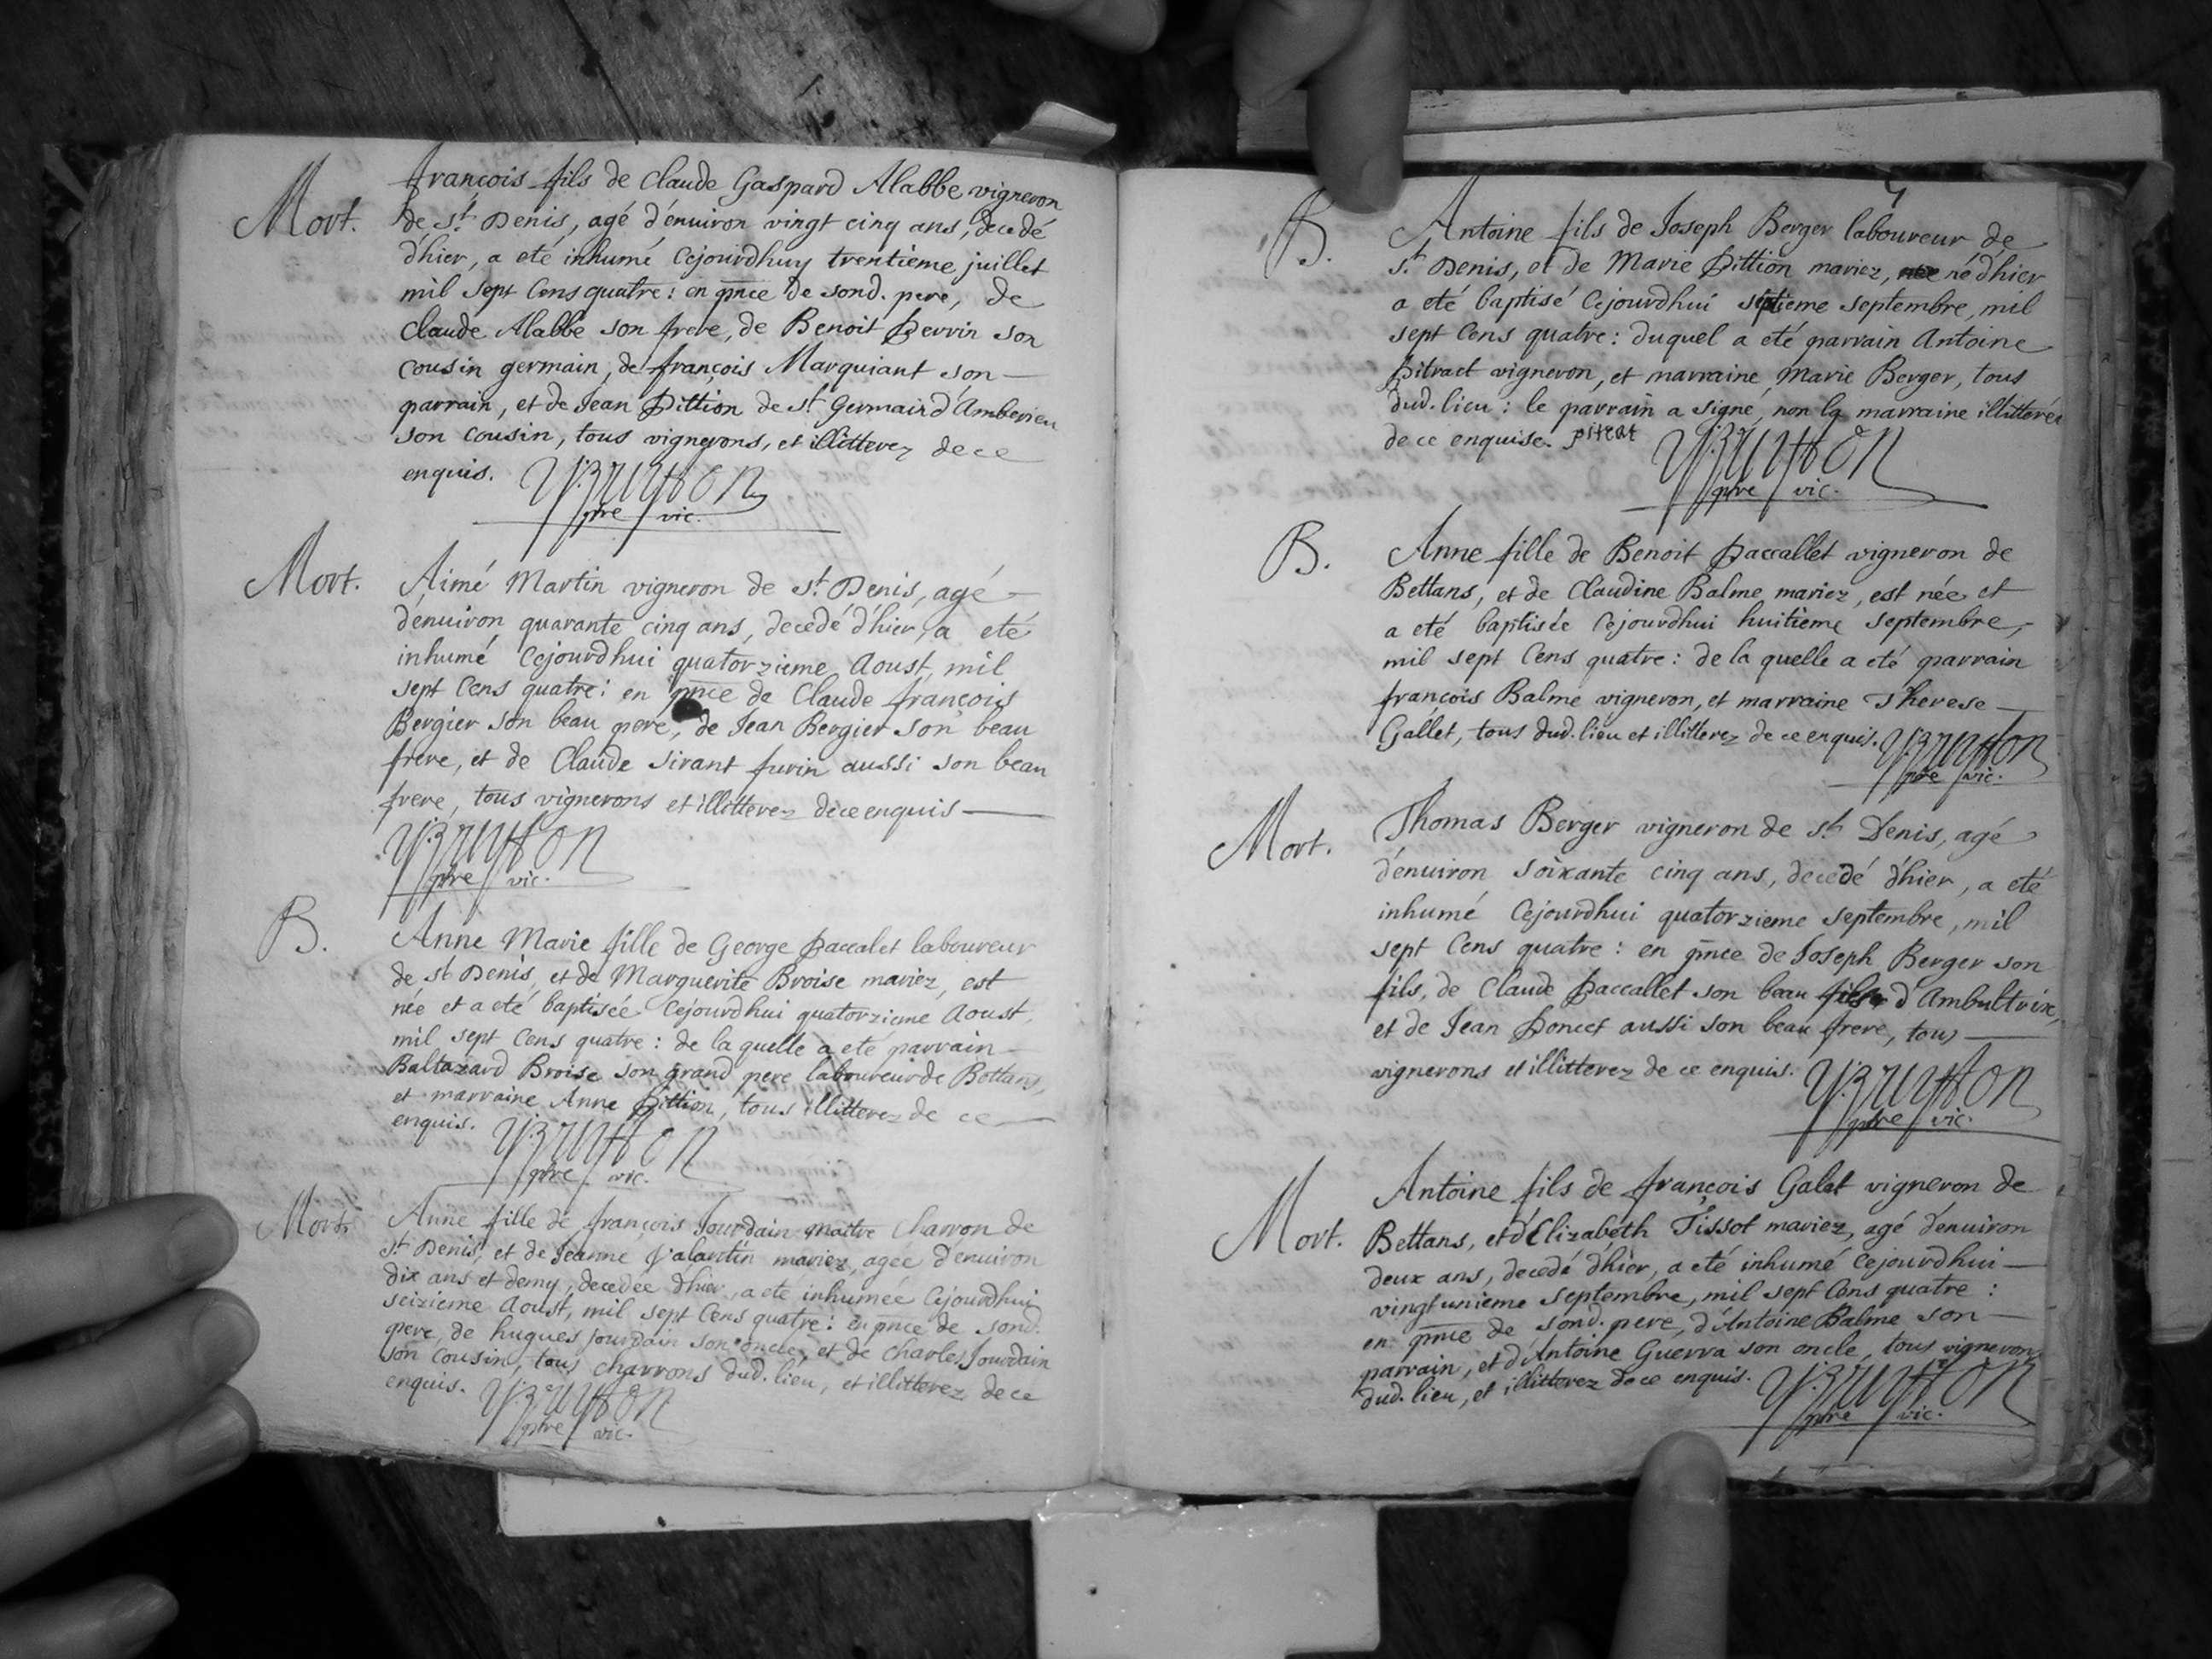 Mort.
françois fils de Claude Gaspard Alabbe vigneron
de St Denis, agé d'enuiron vingt cinq ans, decedé
d'hier, a eté inhumé Cejourdhuy trentième juillet
mil sept Cens quatre : en pnce de sond. pere, de
Claude Alabbe son frere, de Benoit Perrin son
cousin germain, de françois Marquiant son
parrain, et de Jean Pittion de St Germain d'Amberieu
son cousin, tous vignerons, et illitterez de ce
enquis.
pre vic.
Mort.
Aimé Martin vigneron de St Denis, agé
d'enuiron quarante cinq ans, decedé d'hier, a eté
inhumé Cejourdhui quatorzieme Aoust, mil
sept Cens quatre : en pnce de Claude françois
Bergier son beau pere, de Jean Bergier son beau
frere, et de Claude Sirant furin aussi son beau
frere, tous vignerons et illitterez de ce enquis
pre vic.
B.
Anne Marie fille de George Paccalet laboureur
de St Denis, et de Marguerite Broise mariez, est
née et a eté baptisée Cejourdhui quatorzieme Aoust,
mil sept Cens quatre : de la quelle a eté parrain
Baltazard Broise son grand pere laboureur de Bettans,
et marraine Anne Pittion, tous illitterez de ce
enquis.
pre vic.
Mort.
Anne fille de françois Jourdain maître Charron de
St Denis, et de Jeanne Valantin mariez, agée d'enuiron
dix ans et demy, decedée d'hier, a eté inhumée Cejourdhui
seizieme Aoust, mil sept Cens quatre : en pnce de sond.
pere, de hugues Jourdain son oncle, et de Charles Jourdain
son cousin, tous charrons dud. lieu, et illitterez de ce
enquis.
pre vic.
B.
Antoine fils de Joseph Berger laboureur de
St Denis, et de Marie Pittion mariez, né d'hier
a eté baptisé Cejourdhui septieme Septembre, mil
sept Cens quatre : duquel a eté parrain Antoine
Pitract vigneron, et marraine Marie Berger, tous
dud. lieu : le parrain a signé, non la marraine illitterée
de ce enquise. pitrat
pre vic.
B.
Anne fille de Benoit Paccallet vigneron de
Bettans, et de Claudine Balme mariez, est née et
a eté baptisée Cejourdhui huitième Septembre,
mil sept Cens quatre : de la quelle a eté parrain
françois Balme vigneron, et marraine Therese
Gallet, tous dud. lieu et illitterez de ce enquis.
pre vic.
Mort.
Thomas Berger vigneron de St Denis, agé
d'enuiron soixante cinq ans, decedé d'hier, a eté
inhumé Cejourdhui quatorzieme Septembre, mil
sept Cens quatre : en pnce de Joseph Berger son
fils, de Claude Paccallet son beau d'Ambultrix,
et de Jean Poncet aussi son beau frere, tous
vignerons et illitterez de ce enquis.
pre vic.
Mort.
Antoine fils de françois Galet vigneron de
Bettans, et d'Elizabeth Tissot mariez, agé d'enuiron
deux ans, decedé d'hier, a eté inhumé Cejourdhui
vingt unieme Septembre, mil sept Cens quatre :
en pnce de sond. pere, d'Antoine Balme son
parrain, et d'Antoine Guerra son oncle, tous vignerons
dud. lieu, et illitterez de ce enquis.
pre vic.